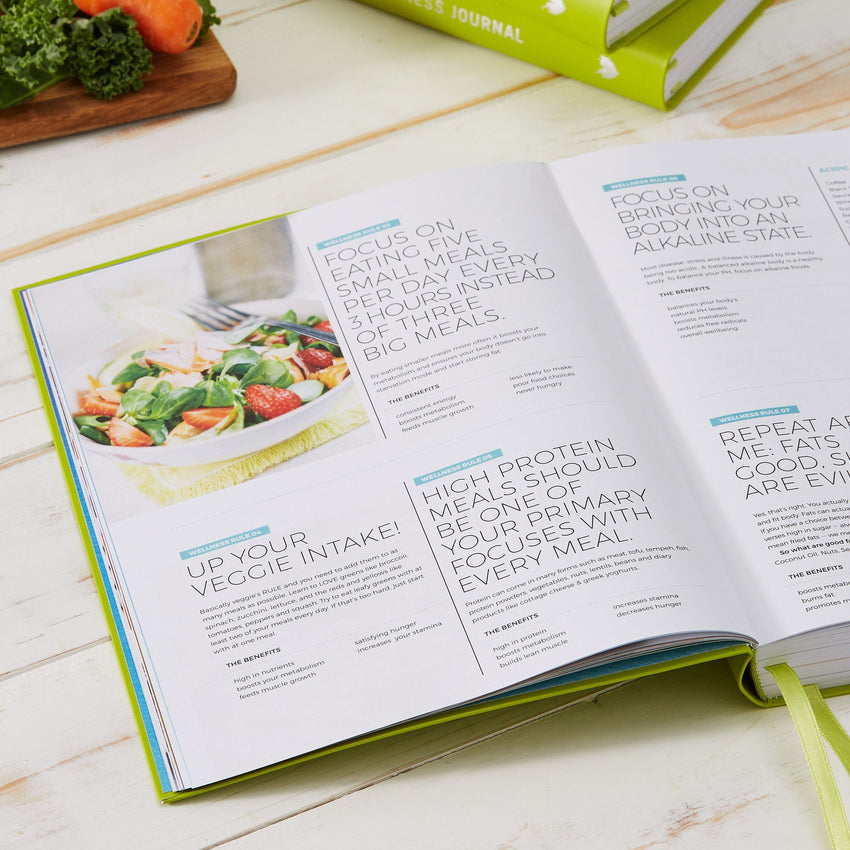 JOURNAL
WELLNESS RULE 03
FOCUS ON
EATING FIVE
SMALL MEALS
PER DAY EVERY
3 HOURS INSTEAD
OF THREE
BIG MEALS.
By eating smaller meals more often it boosts your
metabolism and ensures your body doesn't go into
starvation mode and start storing fat.
THE BENEFITS
consistent energy
boosts metabolism
feeds muscle growth
less likely to make
poor food choices
never hungry
WELLNESS RULE 04
UP YOUR
VEGGIE INTAKE!
Basically veggie's RULE and you need to add them to as
many meals as possible. Learn to LOVE greens like broccoli,
spinach, zucchini, lettuce, and the reds and yellows like
tomatoes, peppers and squash. Try to eat leafy greens with at
least two of your meals every day. If that's too hard, just start
with at one meal.
THE BENEFITS
high in nutrients
boosts your metabolism
feeds muscle growth
satisfying hunger
increases your stamina
WELLNESS RULE 05
HIGH PROTEIN
MEALS SHOULD
BE ONE OF
YOUR PRIMARY
FOCUSES WITH
EVERY MEAL.
Protein can come in many forms such as meat, tofu, tempeh, fish,
protein powders, vegetables, nuts, lentils, beans and diary
products like cottage cheese & greek yoghurts.
THE BENEFITS
high in protein
boosts metabolism
builds lean muscle
increases stamina
decreases hunger
WELLNESS RULE 06
FOCUS ON
BRINGING YOUR
BODY INTO AN
ALKALINE STATE.
Most disease, stress and illness is caused by the body
being too acidic. A balanced alkaline body is a healthy
body. To balance your PH, focus on alkaline foods
THE BENEFITS
balances your body's
natural PH levels
boosts metabolism
reduces free radicals
overall wellbeing
ACIDIC
Coffee
Black
WELLNESS RULE 07
REPEAT
ME: FATS
GOOD,
ARE
Yes, that's right. You actually
and fit body. Fats can
if you have a choice
verses high in sugar
mean fried fats
So what are good
Coconut Oil, Nuts,
THE BENEFITS
boosts
burns fat
promotes